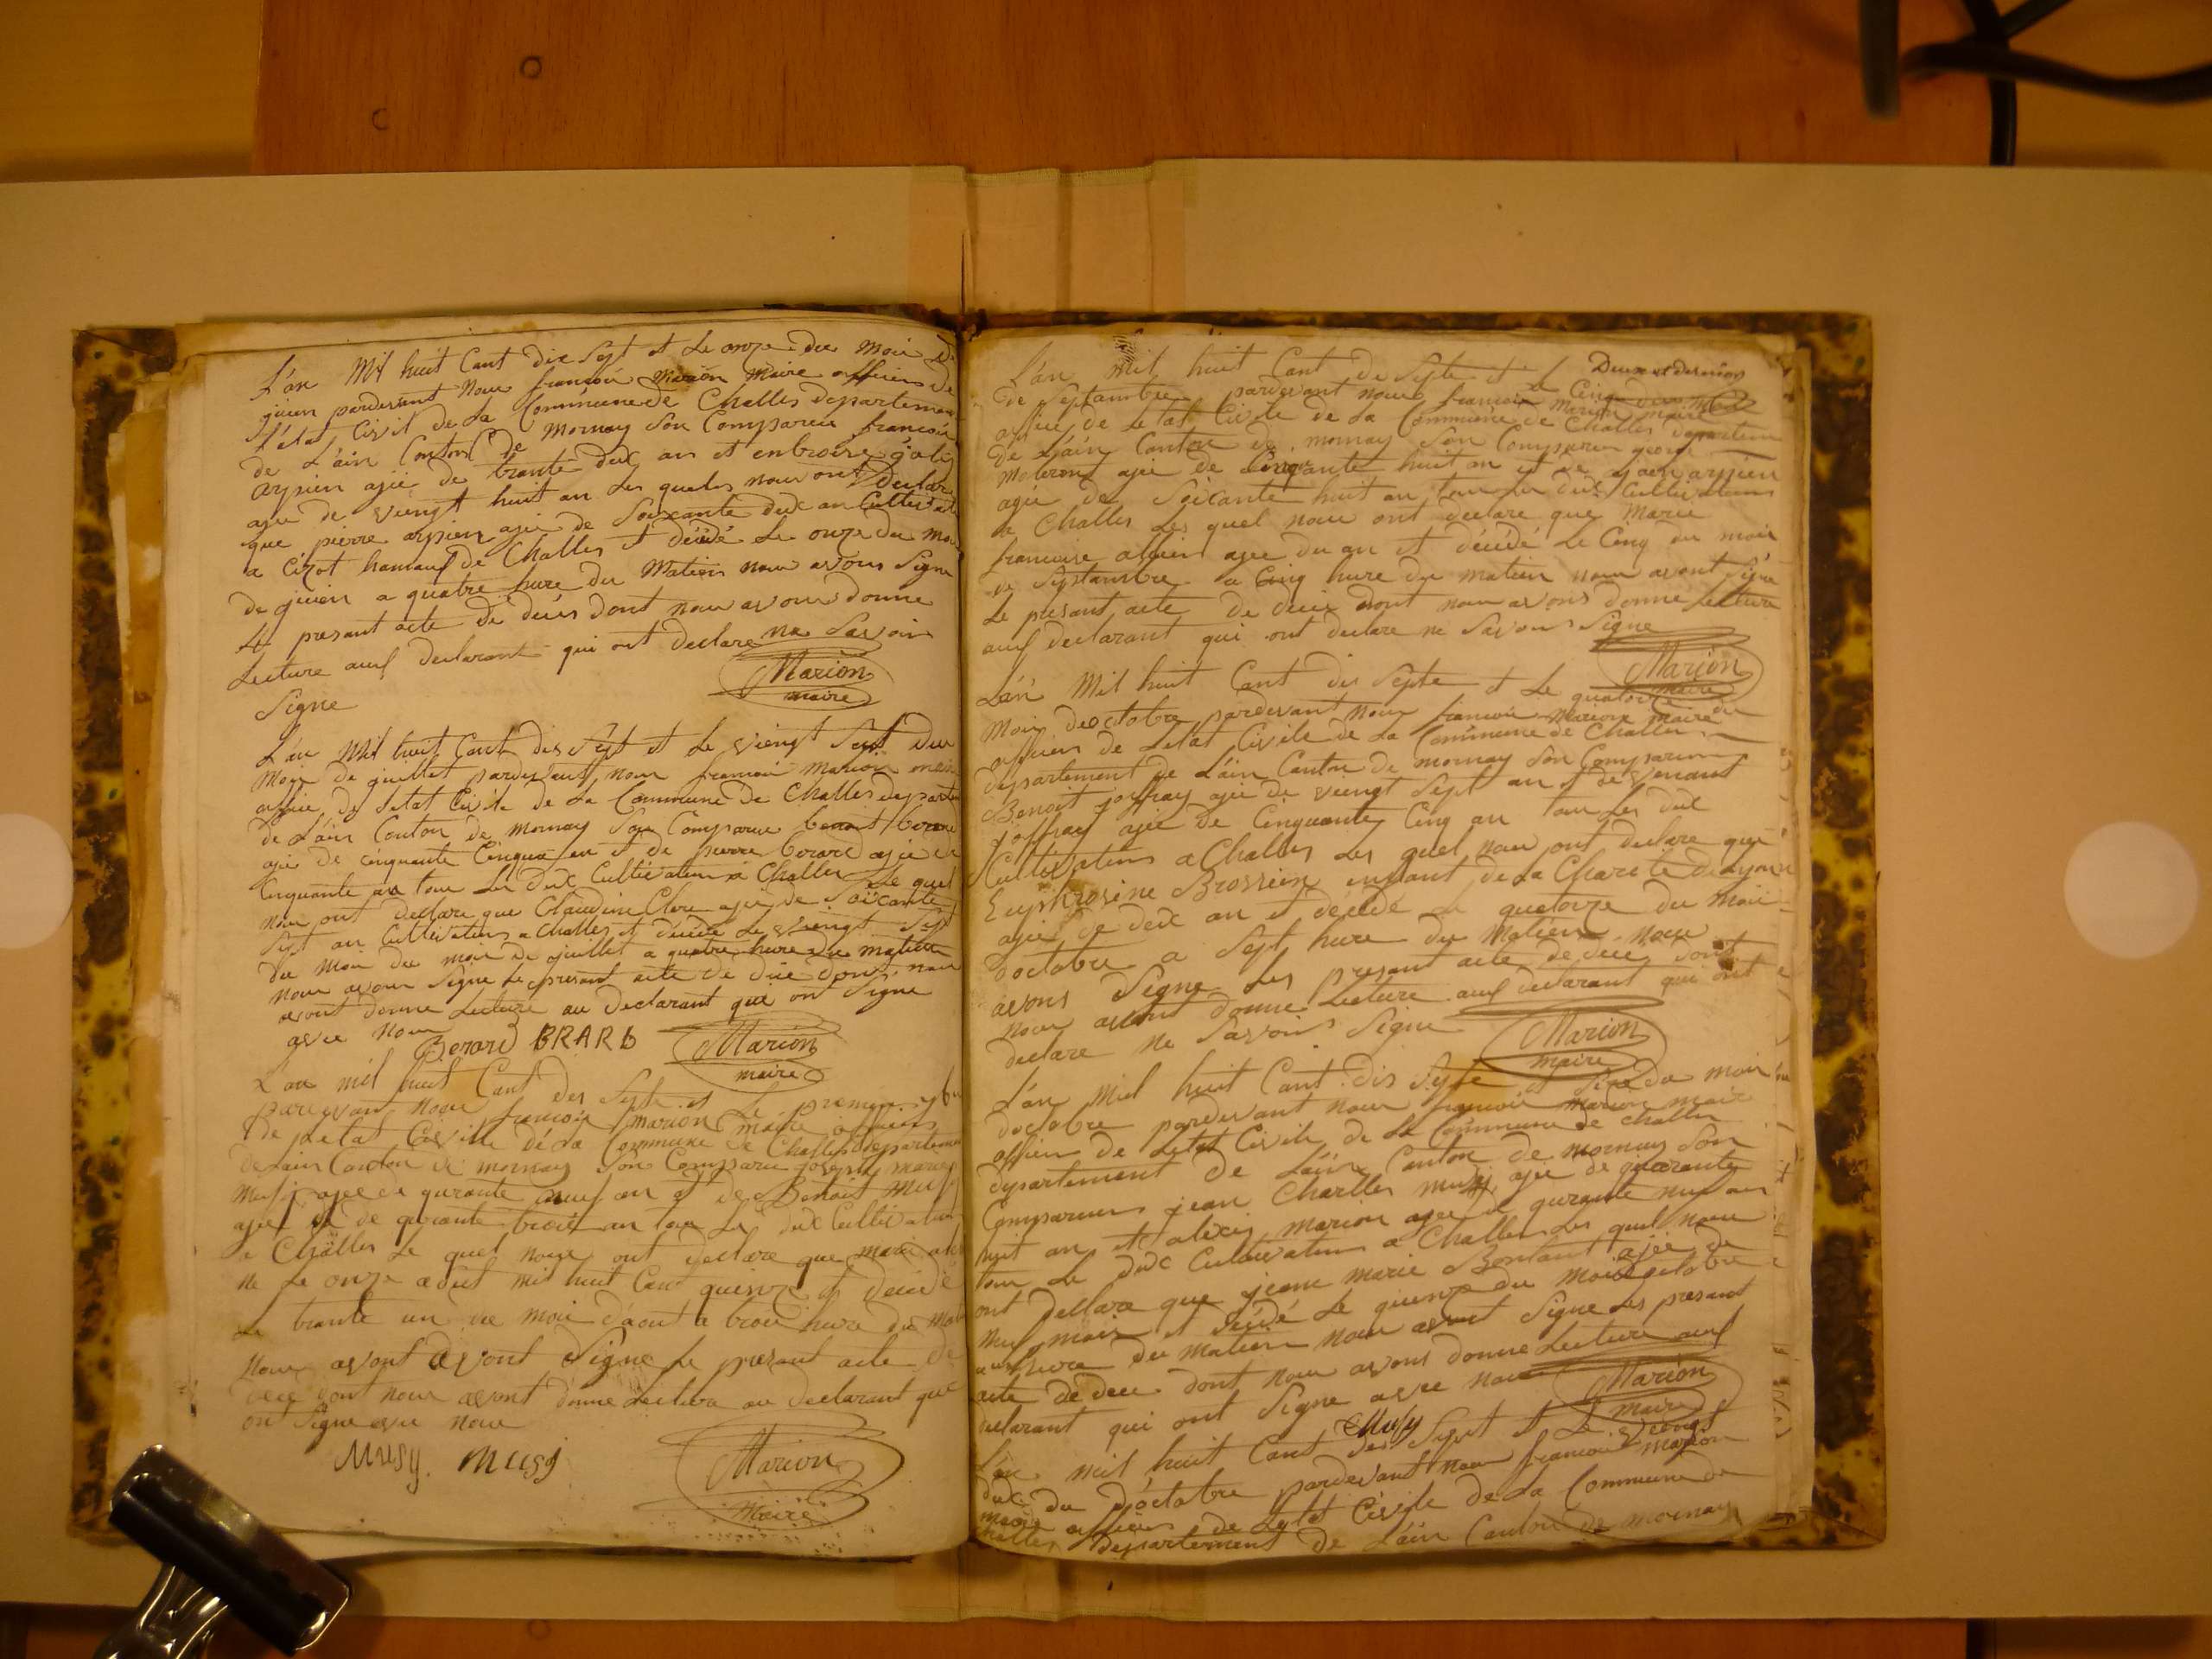 L'an Mil huit Cant dix Sept et Le onze du Moi de
juien pardevant Nous francoi Marion Maire officiers de
l'état Civil de La Commune de Challes departement
de L'ain Canton de Mornay Son Comparu francoi
arpien agé de trante dux an et enbroise
agé de vuengt huit an Les quels nous ont declare
que pierre arpien agée de Soixante dux an Cultivat
a Cizot hamauf de Challes et décidé Le onze du moi
de juien a quatre hure du Matien nous avons Signe
Le present acte de déces dont nous avons donne
Lecture auf declarant qui ont declare ne Savoir
Signe
Marion
maire
L'an Mil huit Cant dis Sept et Le vuengt Sept du
Moi de juillet pardevant nous francoi Marion maire
officie de Letat Civile de La Commune de Challes departe
de L'ain Canton de Mornay Son Comparu benoit borard
agé de cinquante Cinque an et de pierre borard agée de
Cinquante an tous Les Dux Cultivateur a Challes Le quel
nous ont declare que Claudine Clere agée de Soixante
Sept an Cultivateur a Challes et décidé Le vuengt Sept
du Moi du moi de juillet a quatre hure du matien
nous avons Signe Le present acte de déce dont nous
avont donne Lecture au declarant qui ont Signe
avec nous
Berard BRARD
Marion
maire
L'an mil huit Cant des Septe et Le premier
pardevant nous francoi Marion maire officiers
de Letat Civille de La Commune de Challes departement
de Lain Canton de mornay Son Comparu joseph marie
Musy agee de qurante neuf an et de Benoit Musy
agé de de qurante troi an tous Les dux Cultivateur
a Challes Le quel nous ont declare que Marie
ne Le onze aout mil huit Cant quienze et décidé
Le trante un du moi d'aout a troi hure du mat
Nous avont avont Signe Le present acte de
dece dont nous avont donne Lectura au declarant qui
ont Signe avec nous
Musy. Musy
Marion
Maire
Deuxe et dernier
L'an Mil huit Cant di Septe et Le Cinq du Moi
de Septambre pardevant nous francoi Marion maire
officie de Letat Civile de La Commune de Challes departem
de L'ain Canton de mornay Son Comparu george
Moleron agé de Cinquante huit an et de arpien
agée de Soixante huit an tous Les dux Cultivateurs
a Challes Les quel nous ont declare que Marie
francoise agee du an et décidé Le Cinq du moi
de Septambre a Cinq hure du matien nous avont Signe
Le present acte de decie dont nous avons donne Lecture
auf declarant qui ont declare ne Savoir Signe
Marion
maire
L'an Mil huit Cant dis Septe et Le quatorze du
Moi d'octobre pardevant nous francoi Marion maire
officiers de Letat Civile de La Commune de Challes
departement de L'ain Canton de Mornay Son Comparu
Benoit joffray agé de vuengt Sept an et de Venant
joffray agée de Cinquante Cinq an tous Les dux
Cultivateurs a Challes Les quel nous ont declare que
Euphrosine Brossien enfant de La Charite de Lyon
agée de dix an et decede Le quatorze du moi
d'octobre a Sept hure du Matien nous
avons Signe Les present acte de décé dont
nous avont donne Lecture auf declarant qui ont
declare ne Savoir Signe
Marion
maire
L'an Mil huit Cant dis Septe et Seze du moi
doctobre pardevant nous francoi Marion maire
officien de Letat Civile de La Commune de Challes
departement de L'ain Canton de mornay Son
Comparu jean Charlles musy agée de quarante
huit an et alexis Marion agée de qurante neuf an
tous Le dux Cultivateurs a Challes Les quel nous
ont declare que jeane Marie Bontant agée de
neuf mois et décidé Le quienze du mois doctobre
hure du matien nous avont Signe Les present
acte de dece dont nous avons donne Lecture auf
declarant qui ont Signe avec nous
Musy
Marion
maire
L'an mil huit Cant des Sept et Le vuengt
dux du d'octobre pardevant nous francoi Marion
maire officiers de Letat Civile de La Commune de
Challes departement de L'ain Canton de mornay